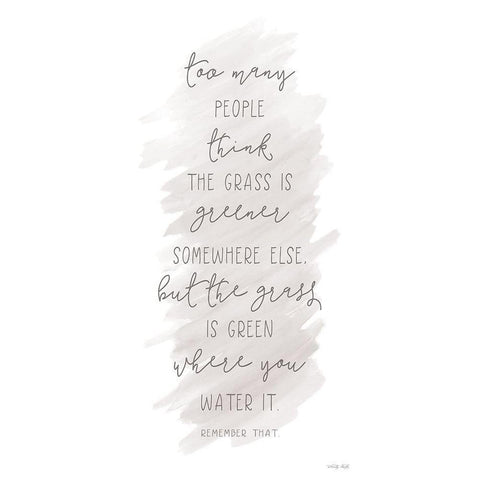 too many
PEOPLE
think
THE GRASS IS
greener
SOMEWHERE ELSE,
but the grass
IS GREEN
where you
WATER IT.
REMEMBER THAT.